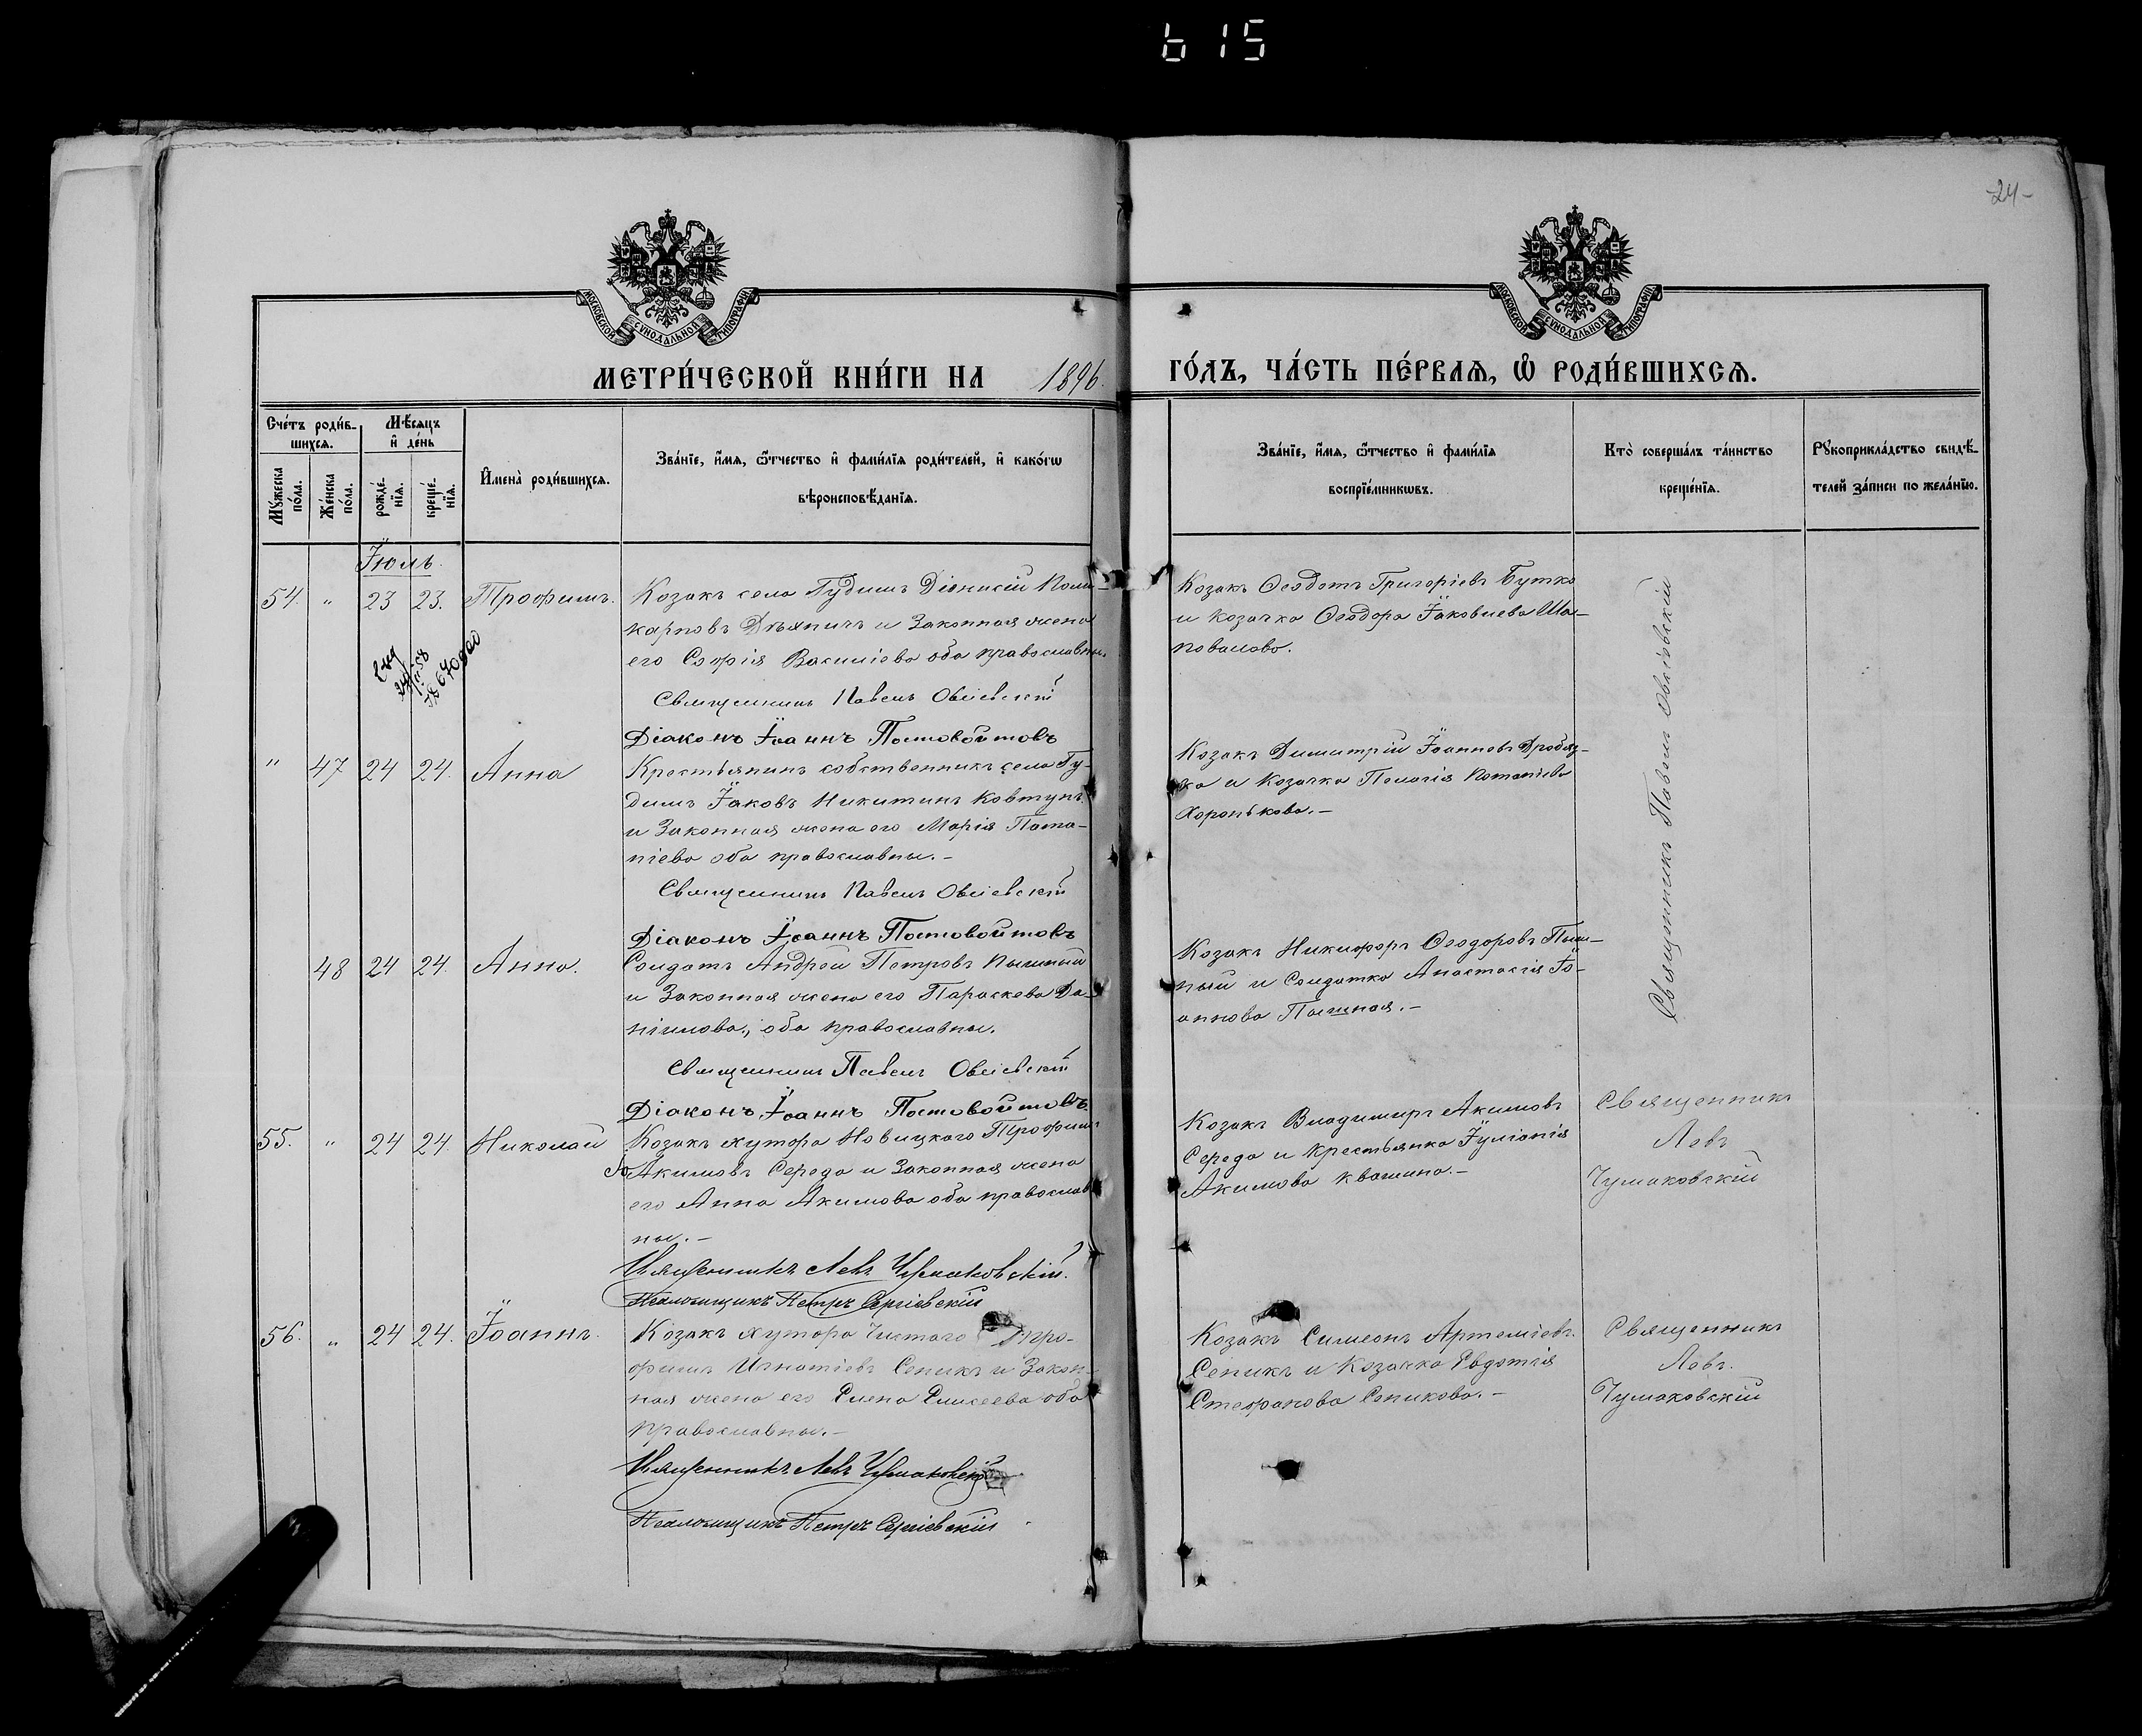 615
-24-
МОСКОВСКОЙ СУНОДАЛЬНОЙ ТИПОГРАФІИ
МОСКОВСКОЙ СУНОДАЛЬНОЙ ТИПОГРАФІИ
МЕТРИ́ЧЕСКОЙ КНИ́ГИ НА 1896.
ГО́ДЪ, ЧА́СТЬ ПЕ́РВАЯ, Ѿ РОДИ́ВШИХСЯ.
Сче́тъ роди́в-
шихся.
Мꙋ́жеска по́ла.
Же́нска по́ла.
Мѣ́сяцъ
и де́нь
рожде́нїя.
креще́нїя.
И҆мена̀ роди́вшихся.
Зва́нїе, и҆́мя, ѻ҆́тчество и҆ фами́лїя роди́телей, и҆ како́гѡ
вѣроисповѣ́данїя.
Зва́нїе, и҆́мя, ѻ҆́тчество и҆ фами́лїя
воспрїе́мникѡвъ.
Кто̀ соверша́лъ та́инство
креще́нїя.
Рꙋкоприкла́дство свидѣ́-
телей за́писи по жела́нїю.
Іюль.
54. " 23 23. Трофимъ.
Козакъ села Гудимъ Діонисій Поли-
карповъ Деяпичъ и Законная жена
его Софія Василіева оба православны.
Священникъ Павелъ Овсіевскій
Діаконъ Іоаннъ Постовойтовъ
Козакъ Ѳеодотъ Григоріевъ Бутко
и козачка Ѳеодора Іаковлева Ша-
повалова.
Священникъ Павелъ Овсіевскій
" 47 24 24. Анна
Крестьянинъ собственникъ села Гу-
димъ Іаковъ Никитинъ Ковтунъ
и Законная жена его Марія Пота-
піева оба православны. -
Священникъ Павелъ Овсіевскій
Діаконъ Іоаннъ Постовойтовъ
Козакъ Димитрій Іоанновъ Дробяз-
ка и Козачка Пелагія Потапіева
Хоронькова. -
48 24 24. Анна.
Солдатъ Андрей Петровъ Пышный
и Законная жена его Параскева Да-
ніилова, оба православны.
Священникъ Павелъ Овсіевскій
Діаконъ Іоаннъ Постовойтовъ
Козакъ Никифоръ Ѳеодоровъ Пыш-
ный и Солдатка Анастасія Іо-
аннова Пышная. -
55. " 24 24. Николай
Козакъ хутора Новицкаго Трофимъ
Акимовъ Середа и Законная жена
его Анна Акимова оба православ
ны. -
Священникъ Левъ Чумаковскій.
Псаломщикъ Петръ Сергіевскій
Козакъ Владимиръ Акимовъ
Середа и крестьянка Іуліанія
Акимова Квашина. -
Священникъ
Левъ
Чумаковскій
56. " 24 24. Іоаннъ.
Козакъ хутора Чистаго Тро-
фимъ Игнатіевъ Сеникъ и Закон-
ная жена его Елена Елисеева оба
православны. -
Священникъ Левъ Чумаковскій
Псаломщикъ Петръ Сергіевскій
Козакъ Симеонъ Артеміевъ
Сеникъ и Козачка Евдотія
Стефанова Сеникова. -
Священникъ
Левъ.
Чумаковскій